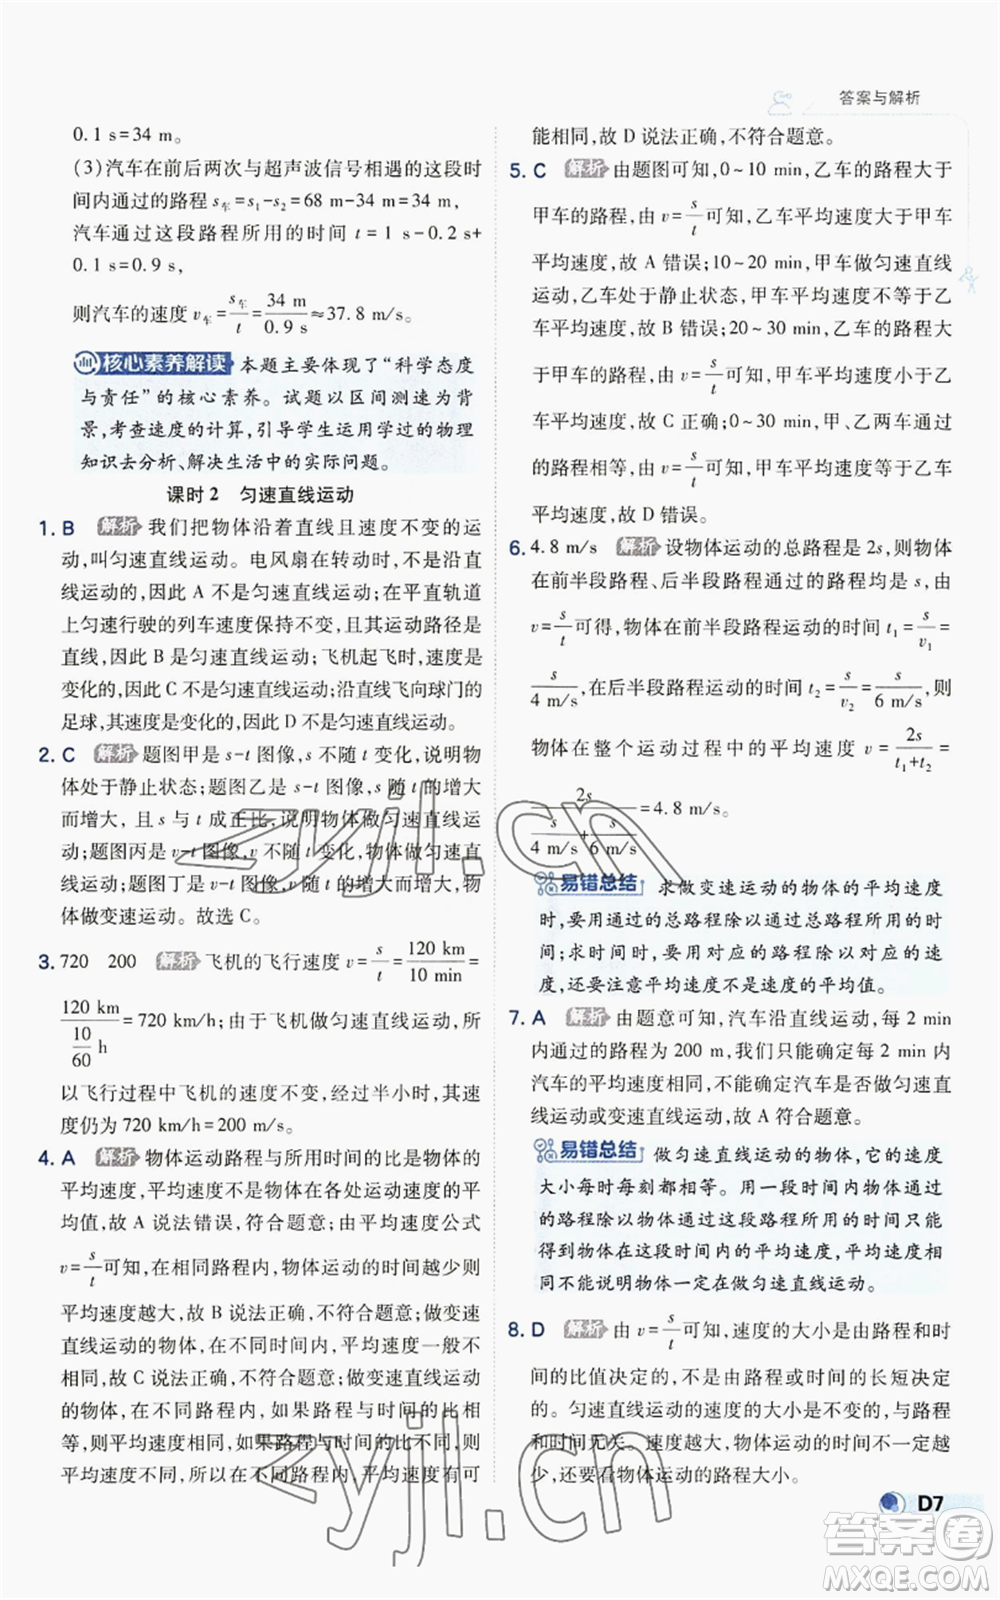 答案与解析
0.1 s=34 m。
(3)汽车在前后两次与超声波信号相遇的这段时
间内通过的路程 s车=s₁-s₂=68 m-34 m=34 m,
汽车通过这段路程所用的时间 t=1 s-0.2 s+
0.1 s=0.9 s,
则汽车的速度 v车=s车/t=34 m/0.9 s≈37.8 m/s。
核心素养解读 本题主要体现了“科学态度
与责任”的核心素养。试题以区间测速为背
景,考查速度的计算,引导学生运用学过的物理
知识去分析、解决生活中的实际问题。
课时2 匀速直线运动
1. B 解析 我们把物体沿着直线且速度不变的运
动,叫匀速直线运动。电风扇在转动时,不是沿直
线运动的,因此 A 不是匀速直线运动;在平直轨道
上匀速行驶的列车速度保持不变,而运动路径是
直线,因此 B 是匀速直线运动;飞机起飞时,速度是
变化的,因此 C 不是匀速直线运动;沿直线飞向球门的
足球,其速度是变化的,因此 D 不是匀速直线运动。
2. C 解析 题图甲是 s-t 图像,s 不随 t 变化,说明物
体处于静止状态;题图乙是 s-t 图像,s 随 t 的增大
而增大,且 s 与 t 成正比,说明物体做匀速直线运
动;题图丙是 v-t 图像,v 不随 t 变化,物体做匀速直
线运动;题图丁是 v-t 图像,v 随 t 的增大而增大,物
体做变速运动。故选 C。
3. 720 200 解析 飞机的飞行速度 v=s/t=120 km/10 min=
120 km/(10/60 h)=720 km/h;由于飞机做匀速直线运动,所
以飞行过程中飞机的速度不变,经过半小时,其速
度仍为 720 km/h=200 m/s。
4. A 解析 物体运动路程与所用时间的比是物体的
平均速度,平均速度不是物体在各处运动速度的平
均值,故 A 说法错误,符合题意;由平均速度公式
v=s/t可知,在相同路程内,物体运动的时间越少则
平均速度越大,故 B 说法正确,不符合题意;做变速
直线运动的物体,在不同时间内,平均速度一般不
相同,故 C 说法正确,不符合题意;做变速直线运动
的物体,在不同路程内的平均速度一般不会恰好相
等,则不同,如果路程与时间的比值相同,平均速度可
能相同,故 D 说法正确,不符合题意。
5. C 解析 由题图可知,0~10 min,乙车的路程大于
甲车的路程,由 v=s/t可知,乙车平均速度大于甲车
平均速度,故 A 错误;10~20 min,甲车做匀速直线
运动,乙车处于静止状态,甲车平均速度不等于乙
车平均速度,故 B 错误;20~30 min,乙车的路程大
于甲车的路程,由 v=s/t可知,甲车平均速度小于乙
车平均速度,故 C 正确;0~30 min,甲、乙两车通过
的路程相同,由 v=s/t可知,甲车平均速度等于乙车
平均速度,故 D 错误。
6. 4.8 m/s 解析 设物体运动的总路程是 2s,则物体
在前半段路程、后半段路程通过的路程均是 s,由
v=s/t可得,物体在前半段路程运动的时间 t₁=s/v₁=
s/4 m/s,在后半段路程运动的时间 t₂=s/v₂=s/6 m/s,则
物体在整个运动过程中的平均速度 v=2s/(t₁+t₂)=
2s/(s/4 m/s+s/6 m/s)=4.8 m/s。
易错总结 求做变速运动的物体的平均速度
时,要用通过的总路程除以通过总路程所用的时
间;求时间时,要用对应的路程除以对应的速
度,还要注意平均速度不是速度的平均值。
7. A 解析 由题意可知,汽车沿直线运动,每 2 min
内通过的路程为 200 m,我们只能确定每 2 min 内
汽车的平均速度相同,不能确定汽车是否做匀速直
线运动或变速直线运动,故 A 符合题意。
易错总结 做匀速直线运动的物体,它的速度
大小每时每刻都相等。用一段时间内物体通过
的路程除以物体通过这段路程所用的时间只能
得到物体在这段时间内的平均速度,平均速度相
同不能说明物体一定在做匀速直线运动。
8. D 解析 由 v=s/t可知,速度的大小是由路程和时
间的比值决定的,不是由路程或时间的长短决定
的。匀速直线运动的速度的大小是不变的,与路程
和时间无关。速度越大,物体运动的时间不一定越
少,还要看物体运动的路程大小。
D7
zyjl.cn
zyjl.cn
答案圈
MXQE.COM